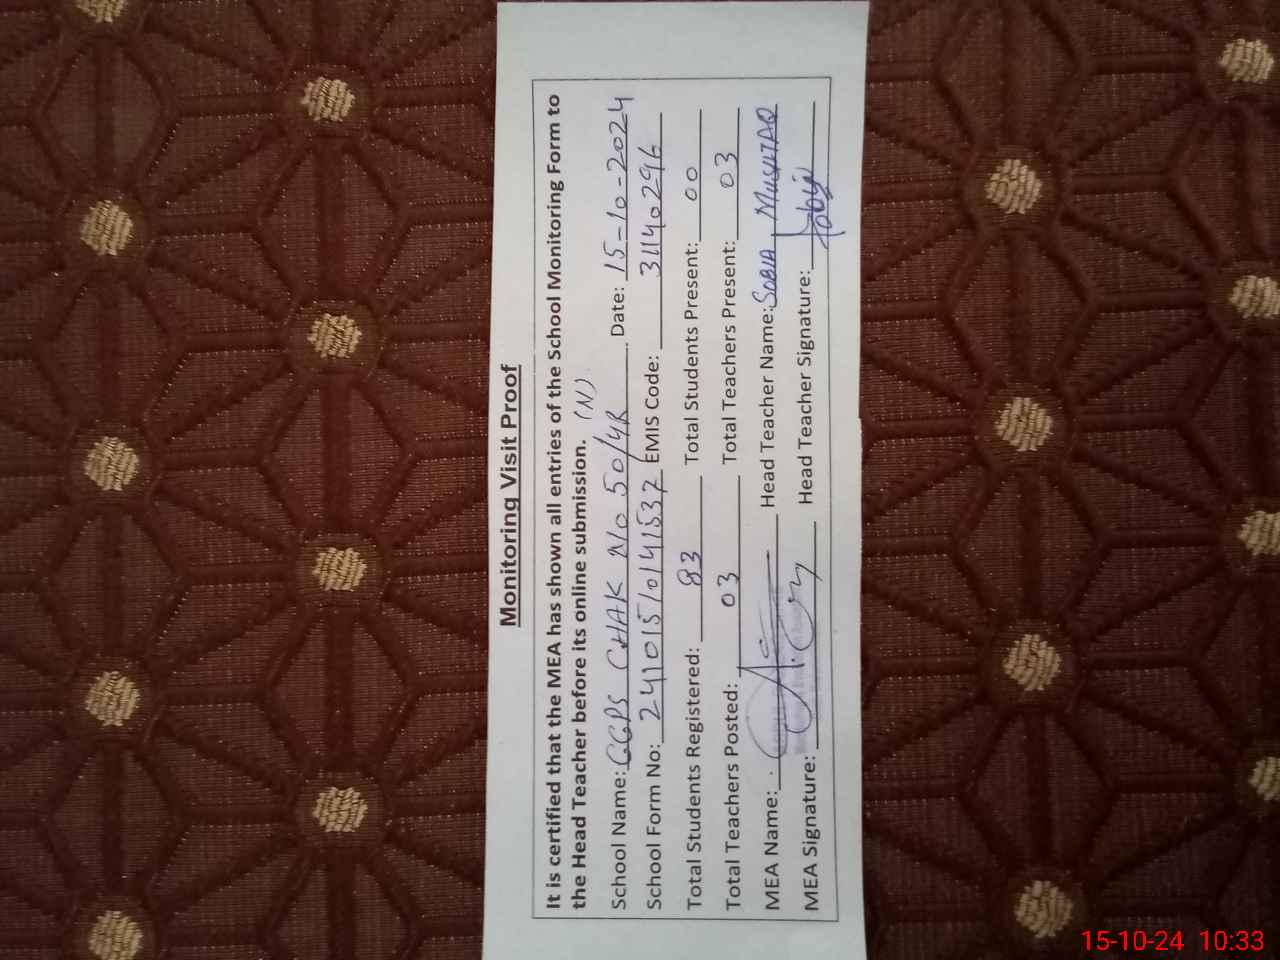 Monitoring Visit Proof
It is certified that the MEA has shown all entries of the School Monitoring Form to
the Head Teacher before its online submission. (N)
School Name: GGPS CHAK No 50/4R Date: 15-10-2024
School Form No: 24101510141537 EMIS Code: 31140296
Total Students Registered: 83 Total Students Present: 00
Total Teachers Posted: 03 Total Teachers Present: 03
MEA Name: Head Teacher Name: SOBIA MUSHTAQ
MEA Signature: Head Teacher Signature:
15-10-24 10:33